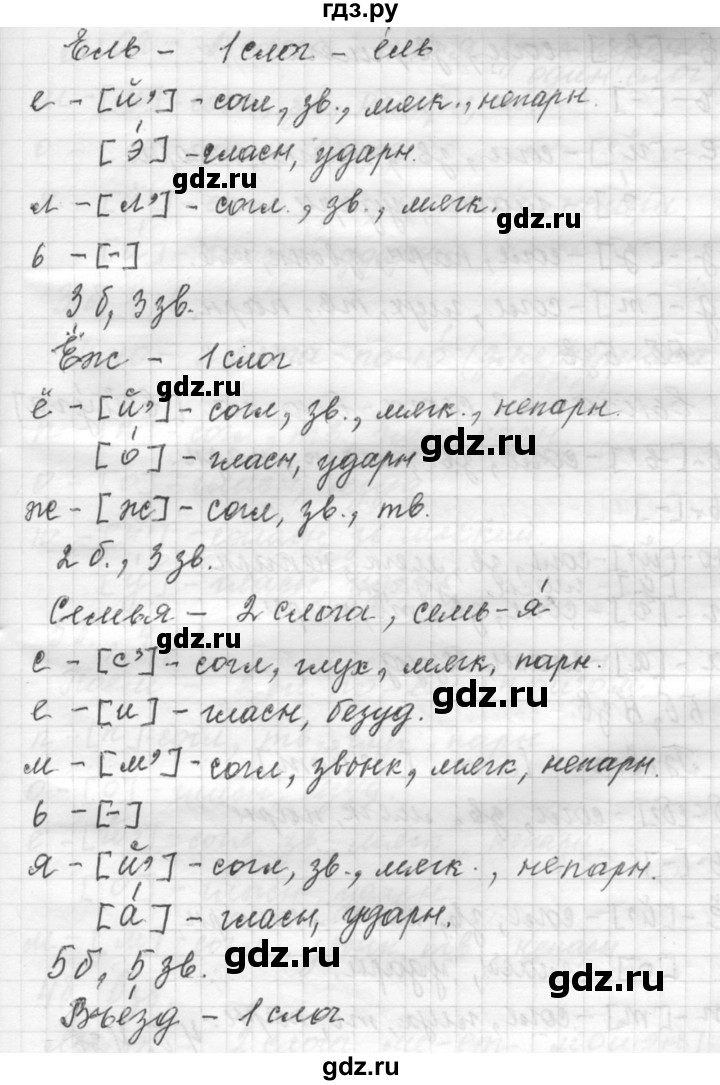 гдз.ру
Ель - 1 слог - е́ль
е - [й'] - согл, зв., мягк., непарн.
[э́] - гласн, ударн.
gdz.ru
л - [л'] - согл., зв., мягк.
gdz.ru
ь - [-]
3 б, 3 зв.
Ёж - 1 слог
gdz.ru
ё - [й'] - согл, зв., мягк., непарн.
[о́] - гласн, ударн
gdz.ru
ж - [ж] - согл, зв., тв.
2 б., 3 зв.
Семья - 2 слога, семь-я́
gdz.ru
с - [с'] - согл, глух, мягк, парн.
gdz.ru
е - [и] - гласн, безуд.
gdz.ru
м - [м'] - согл, звонк, мягк, непарн.
ь - [-]
я - [й'] - согл, зв., мягк., непарн.
[а́] - гласн, ударн.
5 б, 5 зв.
gdz.ru
gdz.ru
Въе́зд - 1 слог
gdz.ru